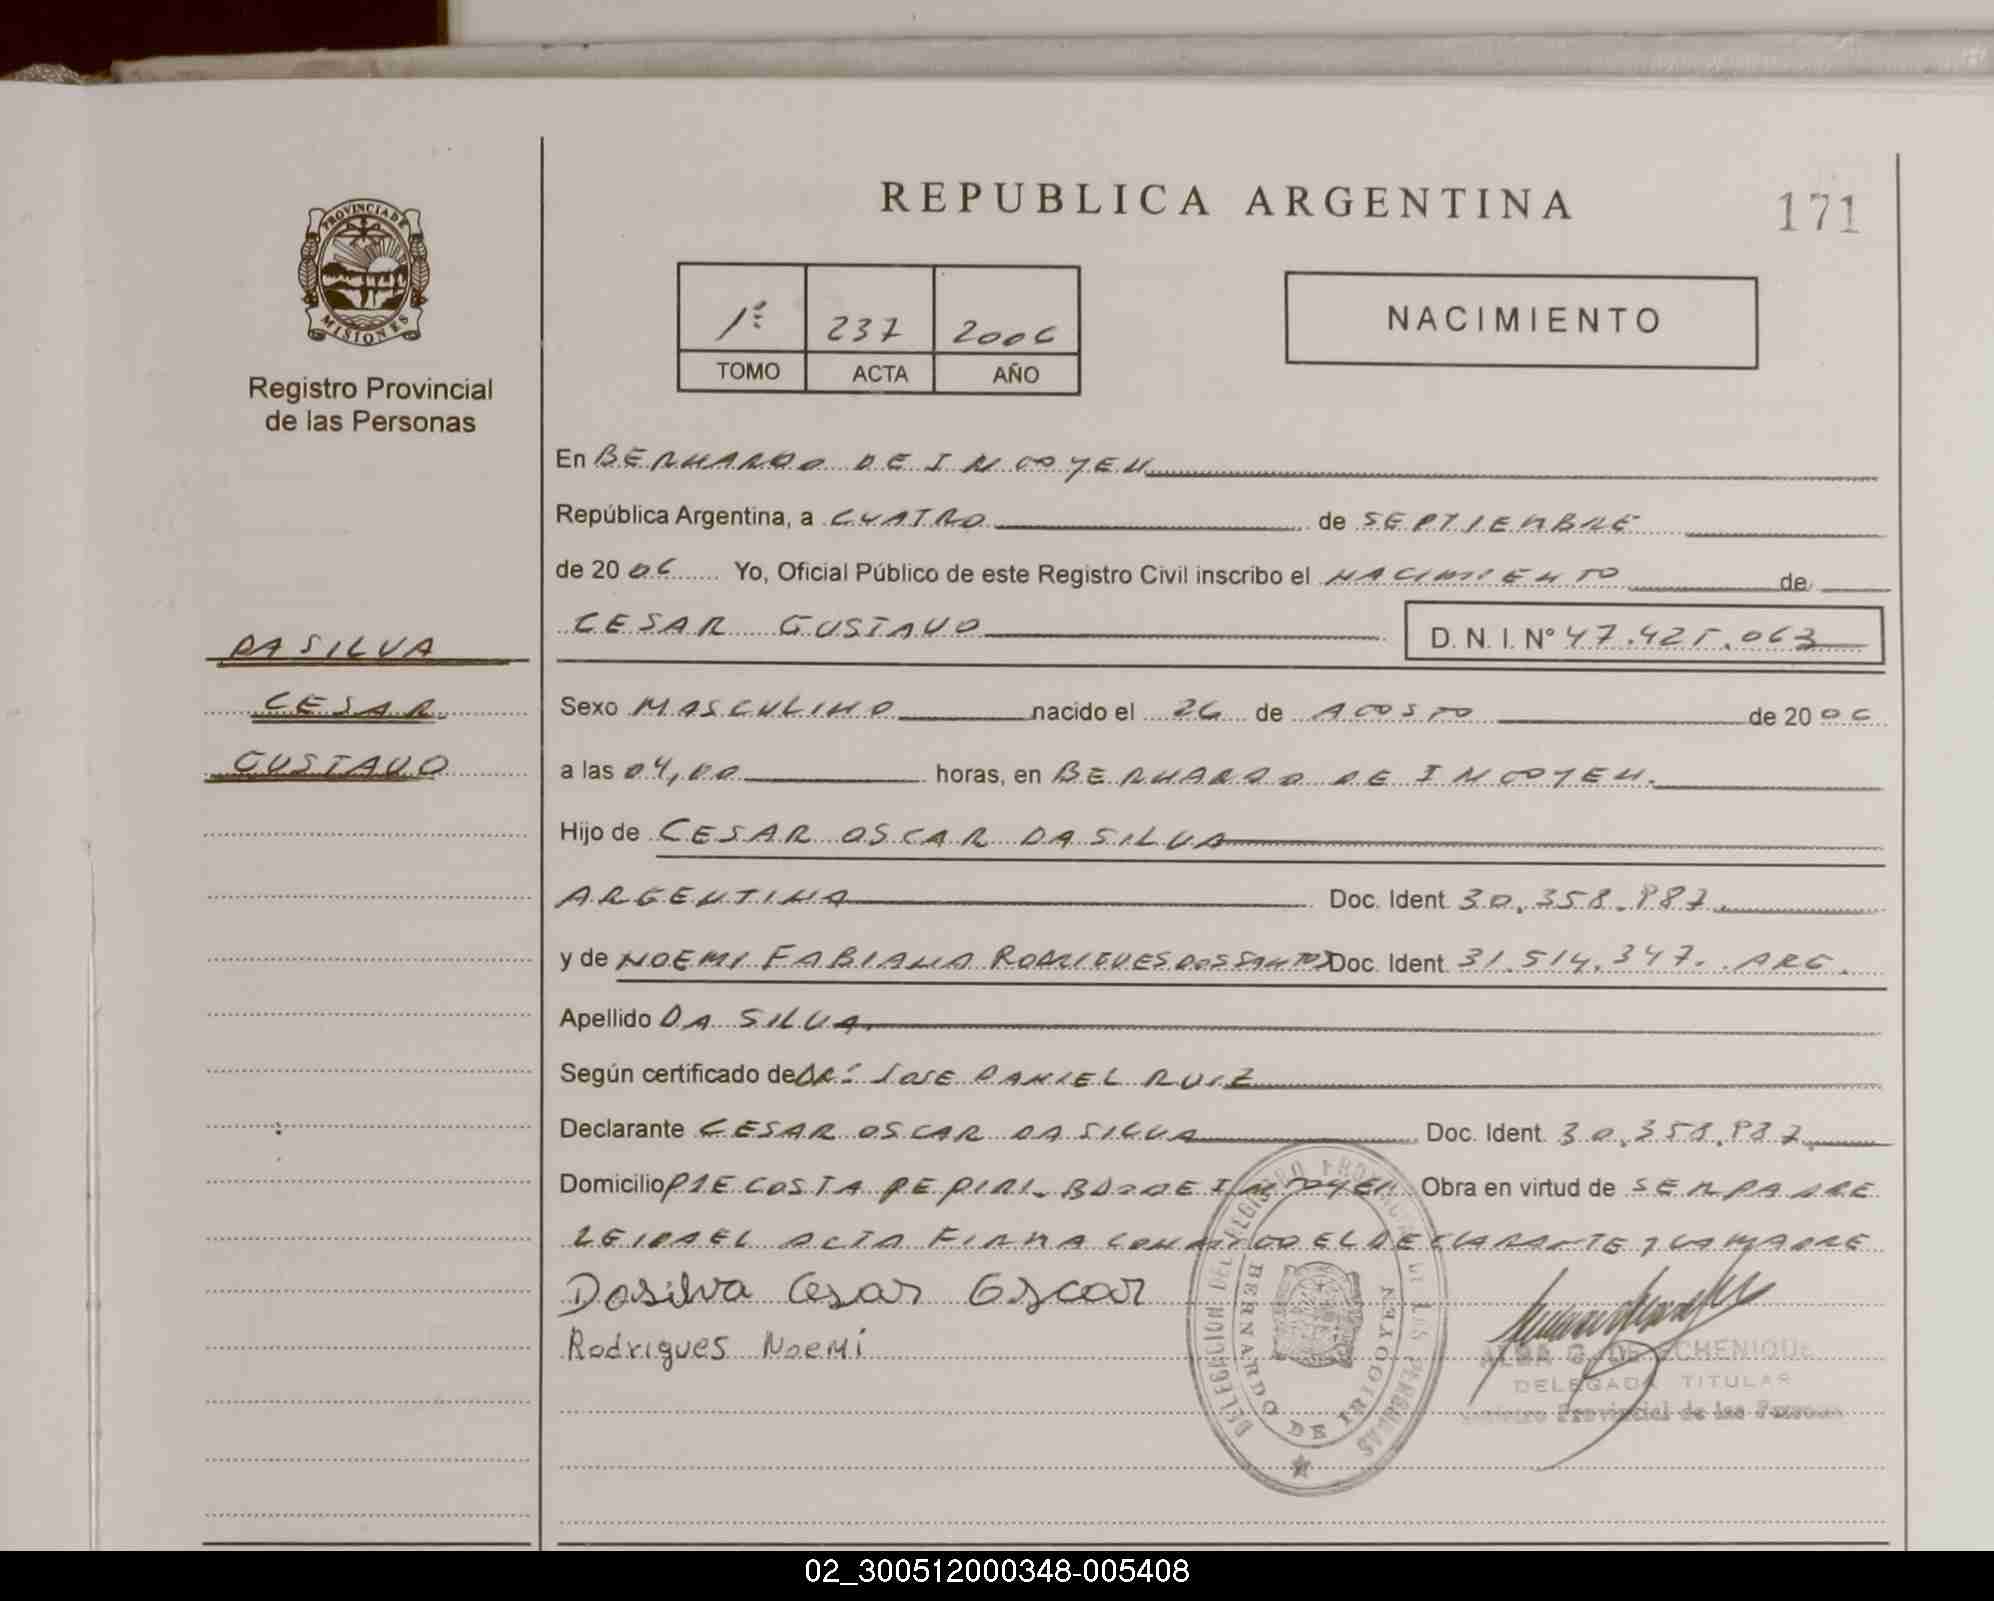 REPUBLICA ARGENTINA
171
PROVINCIA DE MISIONES
Registro Provincial
de las Personas
1º 237 2006
TOMO ACTA AÑO
NACIMIENTO
En BERNARDO DE IRIGOYEN
República Argentina, a CUATRO de SEPTIEMBRE
de 20 06 Yo, Oficial Público de este Registro Civil inscribo el NACIMIENTO de
CESAR GUSTAVO D. N. I. Nº 47.425.063
DA SILVA
CESAR
GUSTAVO
Sexo MASCULINO nacido el 26 de AGOSTO de 20 06
a las 04,00 horas, en BERNARDO DE IRIGOYEN.
Hijo de CESAR OSCAR DA SILVA
ARGENTINA Doc. Ident. 30.358.987.
y de NOEMI FABIANA RODRIGUES DOS SANTOS Doc. Ident. 31.514.347. ARG.
Apellido DA SILVA.
Según certificado de DR: JOSE DANIEL RUIZ
Declarante CESAR OSCAR DA SILVA Doc. Ident. 30.358.987.
Domicilio PJE COSTA PEPIRI. BDO DE IRIGOYEN Obra en virtud de SER PADRE
LEIDA EL ACTA FIRMA CONMIGO EL DECLARANTE Y LA MADRE
Dasilva Cesar Oscar
Rodrigues Noemi
DELEGACION DEL REGISTRO PROVINCIAL DE LAS PERSONAS
BERNARDO DE IRIGOYEN
ALBA G. DE ECHENIQUE
DELEGADA TITULAR
Registro Provincial de las Personas
02_300512000348-005408